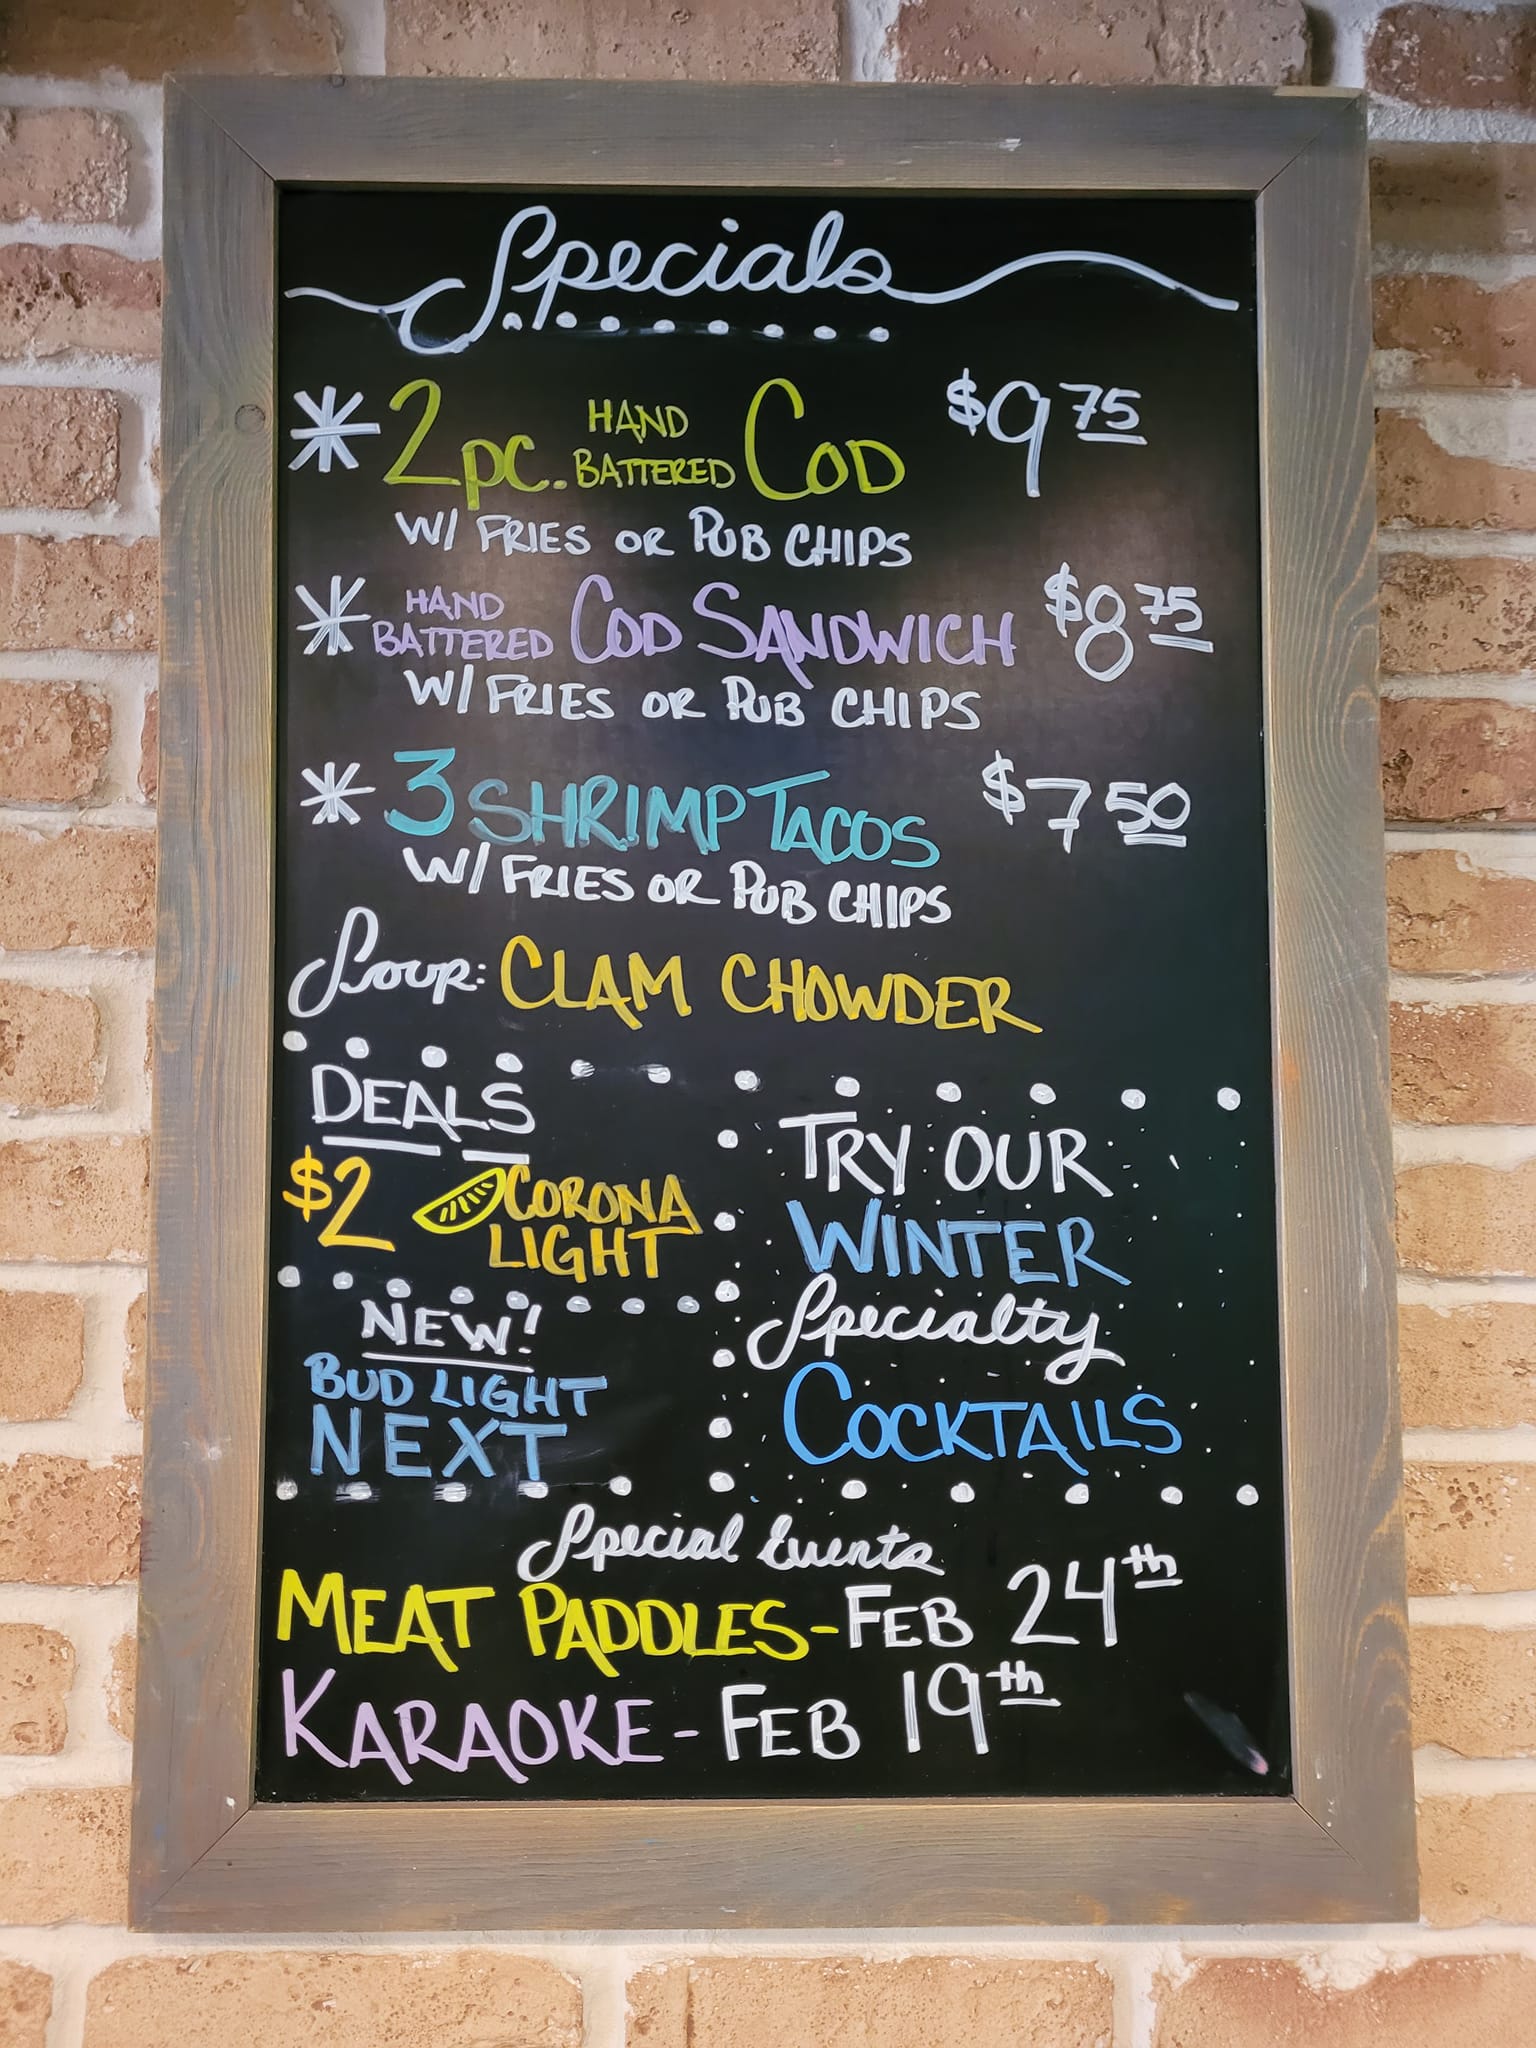 Specials
* 2 pc. HAND BATTERED COD $9 75
W/ FRIES OR PUB CHIPS
* HAND BATTERED COD SANDWICH $8 75
W/ FRIES OR PUB CHIPS
* 3 SHRIMP TACOS $7 50
W/ FRIES OR PUB CHIPS
Soup: CLAM CHOWDER
DEALS
$2 CORONA
LIGHT
NEW!
BUD LIGHT
NEXT
TRY OUR
WINTER
Specialty
COCKTAILS
Special Events
MEAT PADDLES - FEB 24th
KARAOKE - FEB 19th